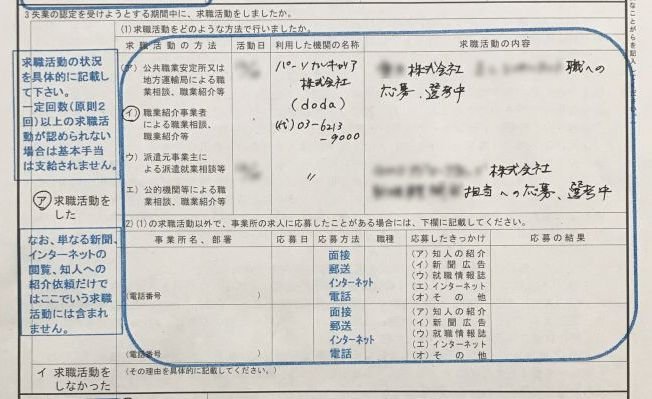 3 失業の認定を受けようとする期間中に、求職活動をしましたか。
(1)求職活動をどのような方法で行いましたか。
求職活動の方法 活動日 利用した機関の名称 求職活動の内容
求職活動の状況
を具体的に記載し
て下さい。
一定回数(原則2
回)以上の求職活
動が認められない
場合は基本手当
は支給されません。
(ア) 公共職業安定所又は
地方運輸局による職
業相談、職業紹介等
(イ) 職業紹介事業者
による職業相談、
職業紹介等
(ウ) 派遣元事業主に
よる派遣就業相談等
(エ) 公的機関等による職
業相談、職業紹介等
パーソルキャリア
株式会社
(doda)
(代)03-6213
-9000
〃
株式会社 職への
応募、選考中
株式会社
担当への応募、選考中
ア 求職活動を
した
なお、単なる新聞、
インターネットの
閲覧、知人への
紹介依頼だけで
はここでいう求職
活動には含まれ
ません。
(2)(1)の求職活動以外で、事業所の求人に応募したことがある場合には、下欄に記載してください。
事業所名、部署 応募日 応募方法 職種 応募したきっかけ 応募の結果
(電話番号 )
面接
郵送
インターネット
電話
(ア)知人の紹介
(イ)新聞広告
(ウ)就職情報誌
(エ)インターネット
(オ)その他
(電話番号 )
面接
郵送
インターネット
電話
(ア)知人の紹介
(イ)新聞広告
(ウ)就職情報誌
(エ)インターネット
(オ)その他
イ 求職活動を
しなかった
(その理由を具体的に記載してください。)